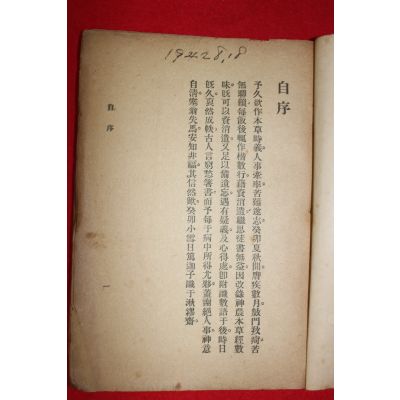 1942 8, 18
自序
予久欲作本草時義人事牽率苦難遂志癸卯夏秋間臂疾數月鼓門我甯苦
無聊賴每飯後輒作楷數行藉資消遣職思徒書無益因改錄神農本草經數
味旣可以資消遣又足以備遺忘遇有疑義及心得處卽附識數語于後時日
旣久裒然成帙古人言窮愁箸書而予每于病中所得尤夥蓋謝絕人事神意
自清塞翁失馬安知非福其信然歟癸卯小雪日篤迦子識于湫漻齋
自序
一